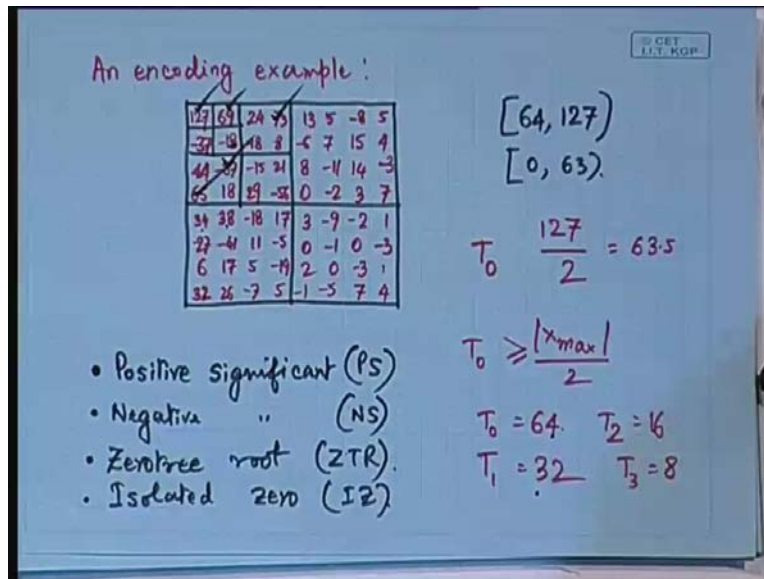 © CET
I.I.T. KGP
An encoding example:
127 69 24 73 13 5 -8 5
-37 -18 -18 8 -6 7 15 4
44 -87 -15 21 8 -11 14 -3
65 18 29 -56 0 -2 3 7
34 38 -18 17 3 -9 -2 1
-27 -41 11 -5 0 -1 0 -3
6 17 5 -19 2 0 -3 1
32 26 -7 5 -1 -5 7 4
[64, 127)
[0, 63).
T0 127/2 = 63.5
T0 ≥ |xmax|/2
T0 = 64. T2 = 16
T1 = 32 T3 = 8
• Positive significant (PS)
• Negative " (NS)
• Zerotree root (ZTR).
• Isolated zero (IZ).